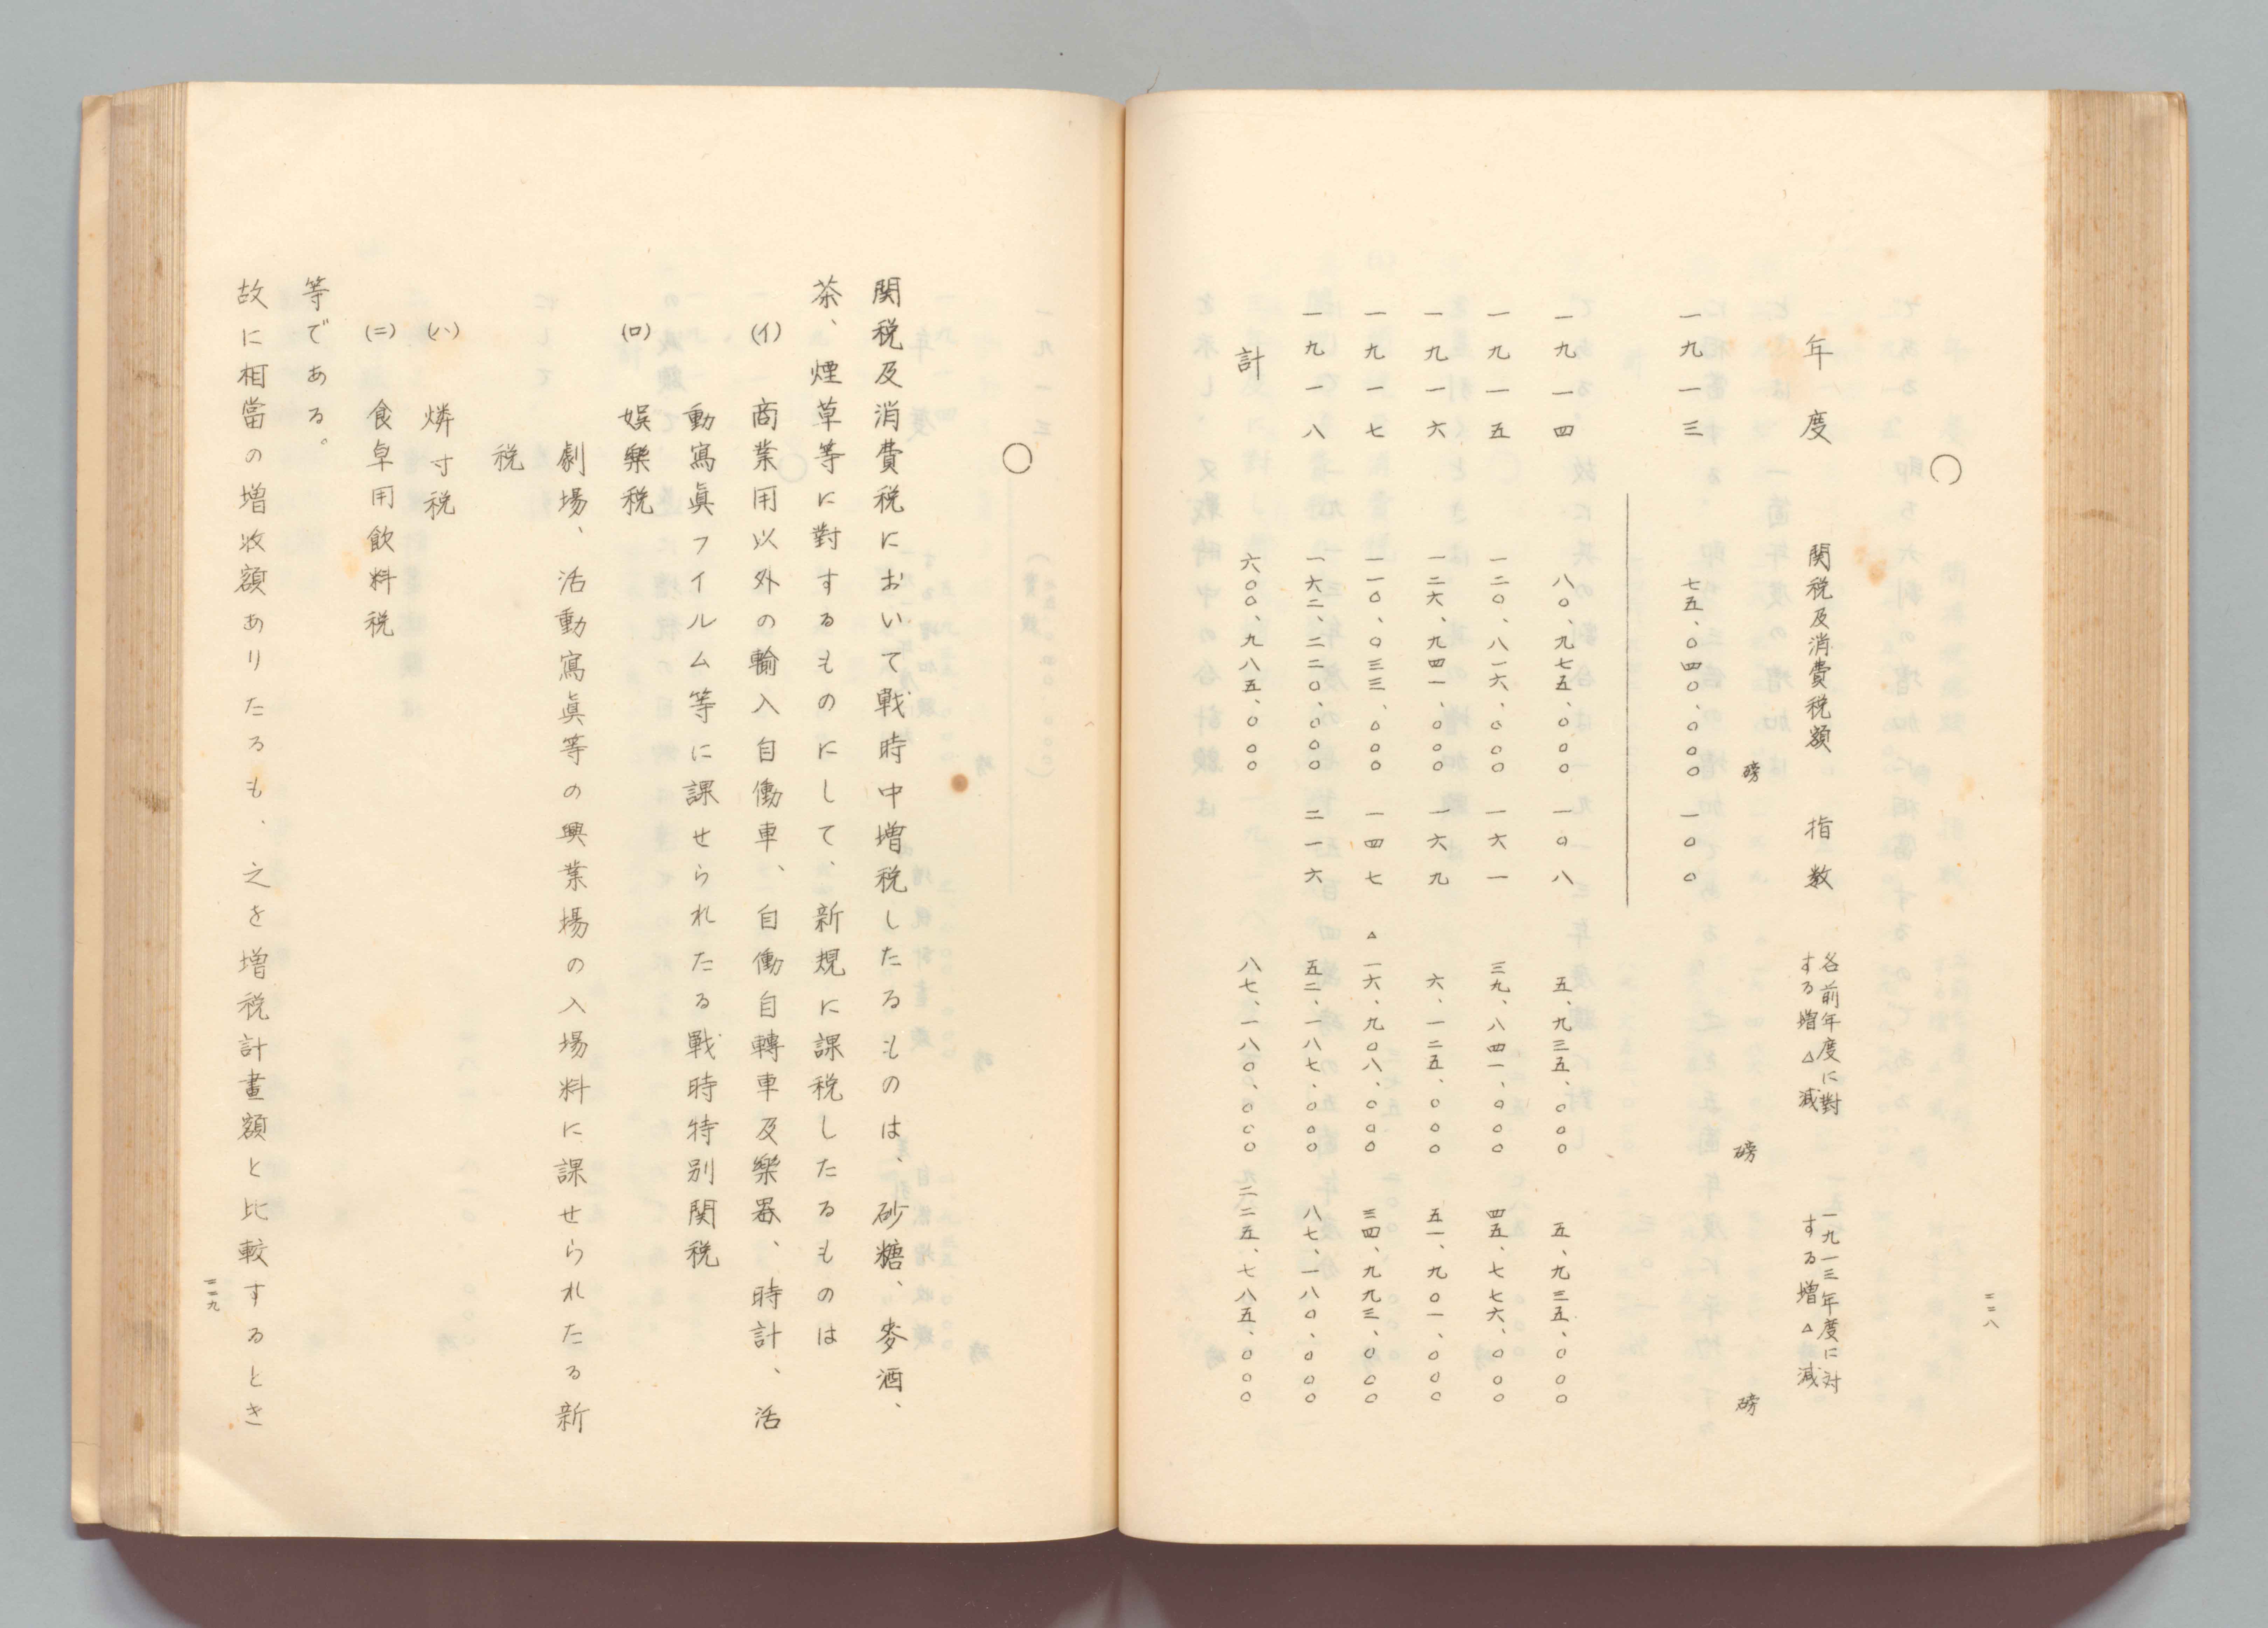 二二八
〇
年度　関税及消費税額　指数　各前年度に對する増△減　一九一三年度に対する増△減
磅　磅　磅
一九一三　七五、〇四〇、〇〇〇　一〇〇
一九一四　八〇、九七五、〇〇〇　一〇八　五、九三五、〇〇〇　五、九三五、〇〇〇
一九一五　一二〇、八一六、〇〇〇　一六一　三九、八四一、〇〇〇　四五、七七六、〇〇〇
一九一六　一二六、九四一、〇〇〇　一六九　六、一二五、〇〇〇　五一、九〇一、〇〇〇
一九一七　一一〇、〇三三、〇〇〇　一四七　△一六、九〇八、〇〇〇　三四、九九三、〇〇〇
一九一八　一六二、二二〇、〇〇〇　二一六　五二、一八七、〇〇〇　八七、一八〇、〇〇〇
計　六〇〇、九八五、〇〇〇　八七、一八〇、〇〇〇　二二五、七八五、〇〇〇
〇
関税及消費税において戦時中増税したるものは、砂糖、麥酒、
茶、煙草等に對するものにして、新規に課税したるものは
(イ)　商業用以外の輸入自働車、自働自轉車及樂器、時計、活
動寫眞フイルム等に課せられたる戰時特別関税
(ロ)　娯樂税
劇場、活動寫眞等の興業場の入場料に課せられたる新
税
(ハ)　燐寸税
(ニ)　食卓用飲料税
等である。
故に相當の増收額ありたるも、之を増税計畫額と比較するとき
二二九